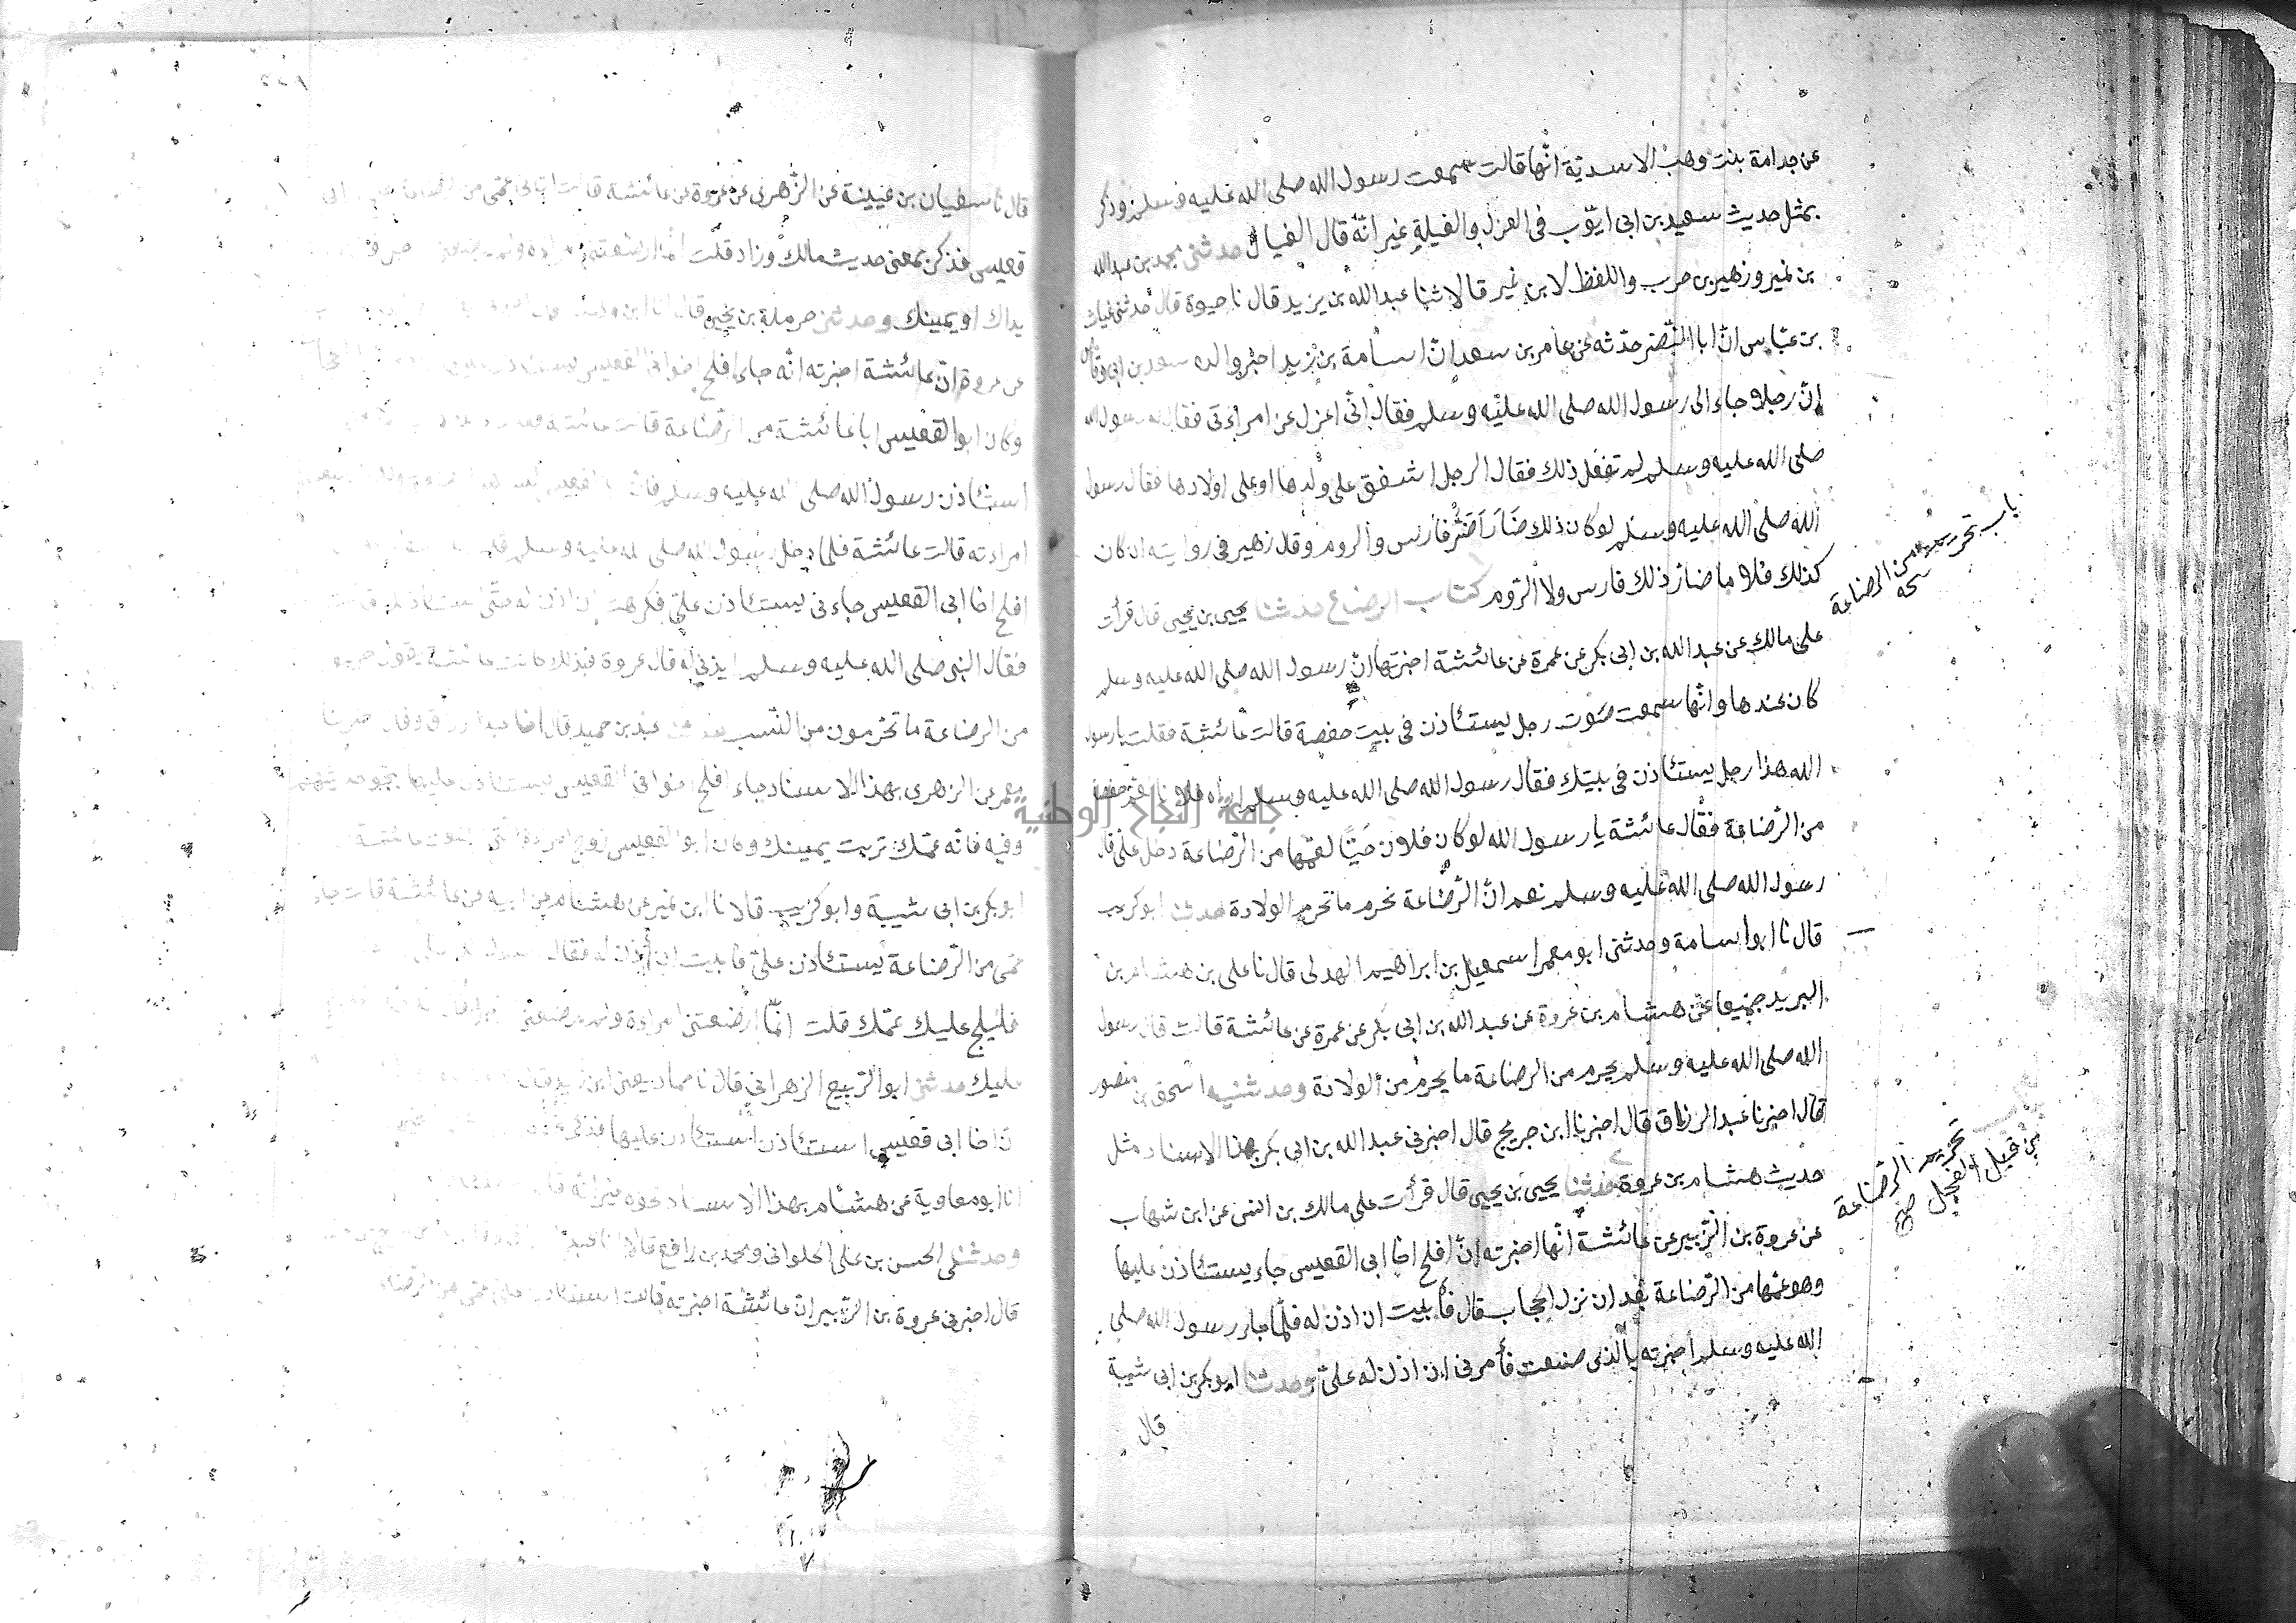 عن جدامة بنت وهب الاسدية انها قالت سمعت رسول الله صلى الله عليه وسلم وذكر
بمثل حديث سعيد بن ابى ايوب فى العزل والغيلة غير انه قال الغيال حدثنى محمد بن عبد الله
بن نمير وزهير بن حرب واللفظ لابن نمير قالا ثنا عبد الله بن يزيد قال نا حيوة قال حدثنى عياش
بن عباس ان ابا النضر حدثه عن عامر بن سعد ان اسامة بن زيد اخبر والده سعد بن ابى وقاص
ان رجلا جاء الى رسول الله صلى الله عليه وسلم فقال انى اعزل عن امراءتى فقال له رسول الله
صلى الله عليه وسلم لم تفعل ذلك فقال الرجل اشفق على ولدها او على اولادها فقال رسول
الله صلى الله عليه وسلم لو كان ذلك ضارا ضر فارس والروم وقال زهير فى روايته ان كان
كذلك فلا ما ضار ذلك فارس ولا الروم كتاب الرضاع حدثنا يحيى بن يحيى قال قرأت
على مالك عن عبد الله بن ابى بكر عن عمرة عن عائشة اخبرتها ان رسول الله صلى الله عليه وسلم
كان عندها وانها سمعت صوت رجل يستئاذن فى بيت حفصة قالت عائشة فقلت يا رسول
الله هذا رجل يستئاذن فى بيتك فقال رسول الله صلى الله عليه وسلم اراه فلانا لعم حفصة
من الرضاعة فقال عائشة يا رسول الله لو كان فلان حيا لعمها من الرضاعة دخل على قال
رسول الله صلى الله عليه وسلم نعم ان الرضاعة تحرم ما تحرم الولادة حدثنا ابو كريب
قال نا ابو اسامة وحدثنى ابو معمر اسمعيل بن ابراهيم الهدلى قال نا على بن هشام بن
البريد جميعا عن هشام بن عروة عن عبد الله بن ابى بكر عن عمرة عن عائشة قالت قال رسول
الله صلى الله عليه وسلم يحرم من الرضاعة ما يحرم من الولادة وحدثنيه اسحق بن منصور
قال اخبرنا عبد الرزاق قال اخبرنا ابن جريج قال اخبرنى عبد الله بن ابى بكر بهذا الاسناد مثل
حديث هشام بن عروة حدثنا يحيى بن يحيى قال قرأت على مالك بن انس عن ابن شهاب
عن عروة بن الزبير عن عائشة انها اخبرته ان افلح اخا ابى القعيس جاء يستئاذن عليها
وهو عمها من الرضاعة بعد ان نزل الحجاب قال فأبيت ان اذن له فلما جاء رسول الله صلى
الله عليه وسلم اخبرته بالذى صنعت فأمرنى ان اذن له على وحدثنا ابو بكر بن ابى شيبة
قال
باب تحريم من الرضاعة
تحريم الرضاعة
من قبل الفحل
قال نا سفيان بن عيينة عن الزهرى عن عروة عن عائشة قالت اتانى عمى من
قعيس فذكر بمعنى حديث مالك وزاد قلت انما ارضعتنى
يداك او يمينك وحدثنى حرملة بن يحيى قال انا ابن وهب
عن عروة ان عائشة اخبرته انه جاء افلح اخو ابى القعيس يستئاذن
وكان ابو القعيس ابا عائشة من الرضاعة قالت عائشة
استئاذن رسول الله صلى الله عليه وسلم فان
امراءته قالت عائشة فلما دخل رسول الله صلى الله عليه وسلم
افلح اخا ابى القعيس جاءنى يستئاذن على فكرهت ان اذن له حتى
فقال النبى صلى الله عليه وسلم ايذنى له قال عروة فبذلك كانت عائشة تقول
من الرضاعة ما تحرمون من النسب عبد بن حميد قال
معمر عن الزهرى بهذا الاسناد جاء افلح اخو ابى القعيس يستئاذن عليها بنحو
وفيه فانه عمك تربت يمينك وكان ابو القعيس زوج
ابو بكر بن ابى شيبة وابو كريب قالا نا ابن نمير عن هشام عن ابيه عن عائشة قالت جاء
عمى من الرضاعة يستئاذن على فأبيت ان أذن له فقال
فليلج عليك عمك قلت انما ارضعتنى امراءة ولم يرضعنى
عليك حدثنى ابو الربيع الزهرانى قال نا حماد يعنى ابن زيد قال
ان اخا ابى قعيس استئاذن عليها فذكر
انا ابو معاوية عن هشام بهذا الاسناد نحوه غير انه قال
وحدثنى الحسن بن على الحلوانى ومحمد بن رافع قالا انا
قال اخبرنى عروة بن الزبير ان عائشة اخبرته قالت استئاذن على عمى من الرضاعة
جامعة النجاح الوطنية